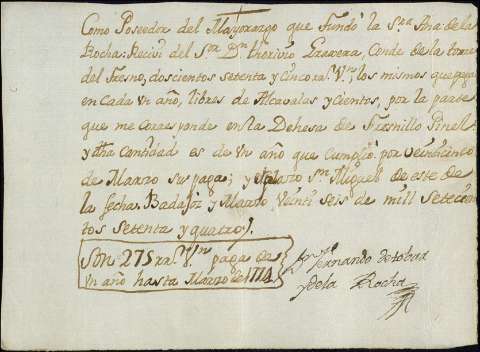 Como Poseedor del Mayorazgo que fundó la Sra. Ana de la
Rocha: Recivi del Sor. Dn. Gravera, Conde de la torre
del Fresno, doscientos setenta y Cinco rs. Vn., los mismos que paga
en cada vn año, libres de Alcavalas y Cientos, por la parte
que me corresponde en la Dehesa de Fresnillo Pinel
y dha Cantidad es de vn año que Cumplio por veinticinco
de Marzo su paga; y plazo Sn. Miguel de este de
la fecha. Badajoz y Marzo veinti seis de mill setecien
tos setenta y quatro.
Son 275 rs. Vn. paga de
vn año hasta Marzo de 1774
Fernando de tobar
y de la Rocha